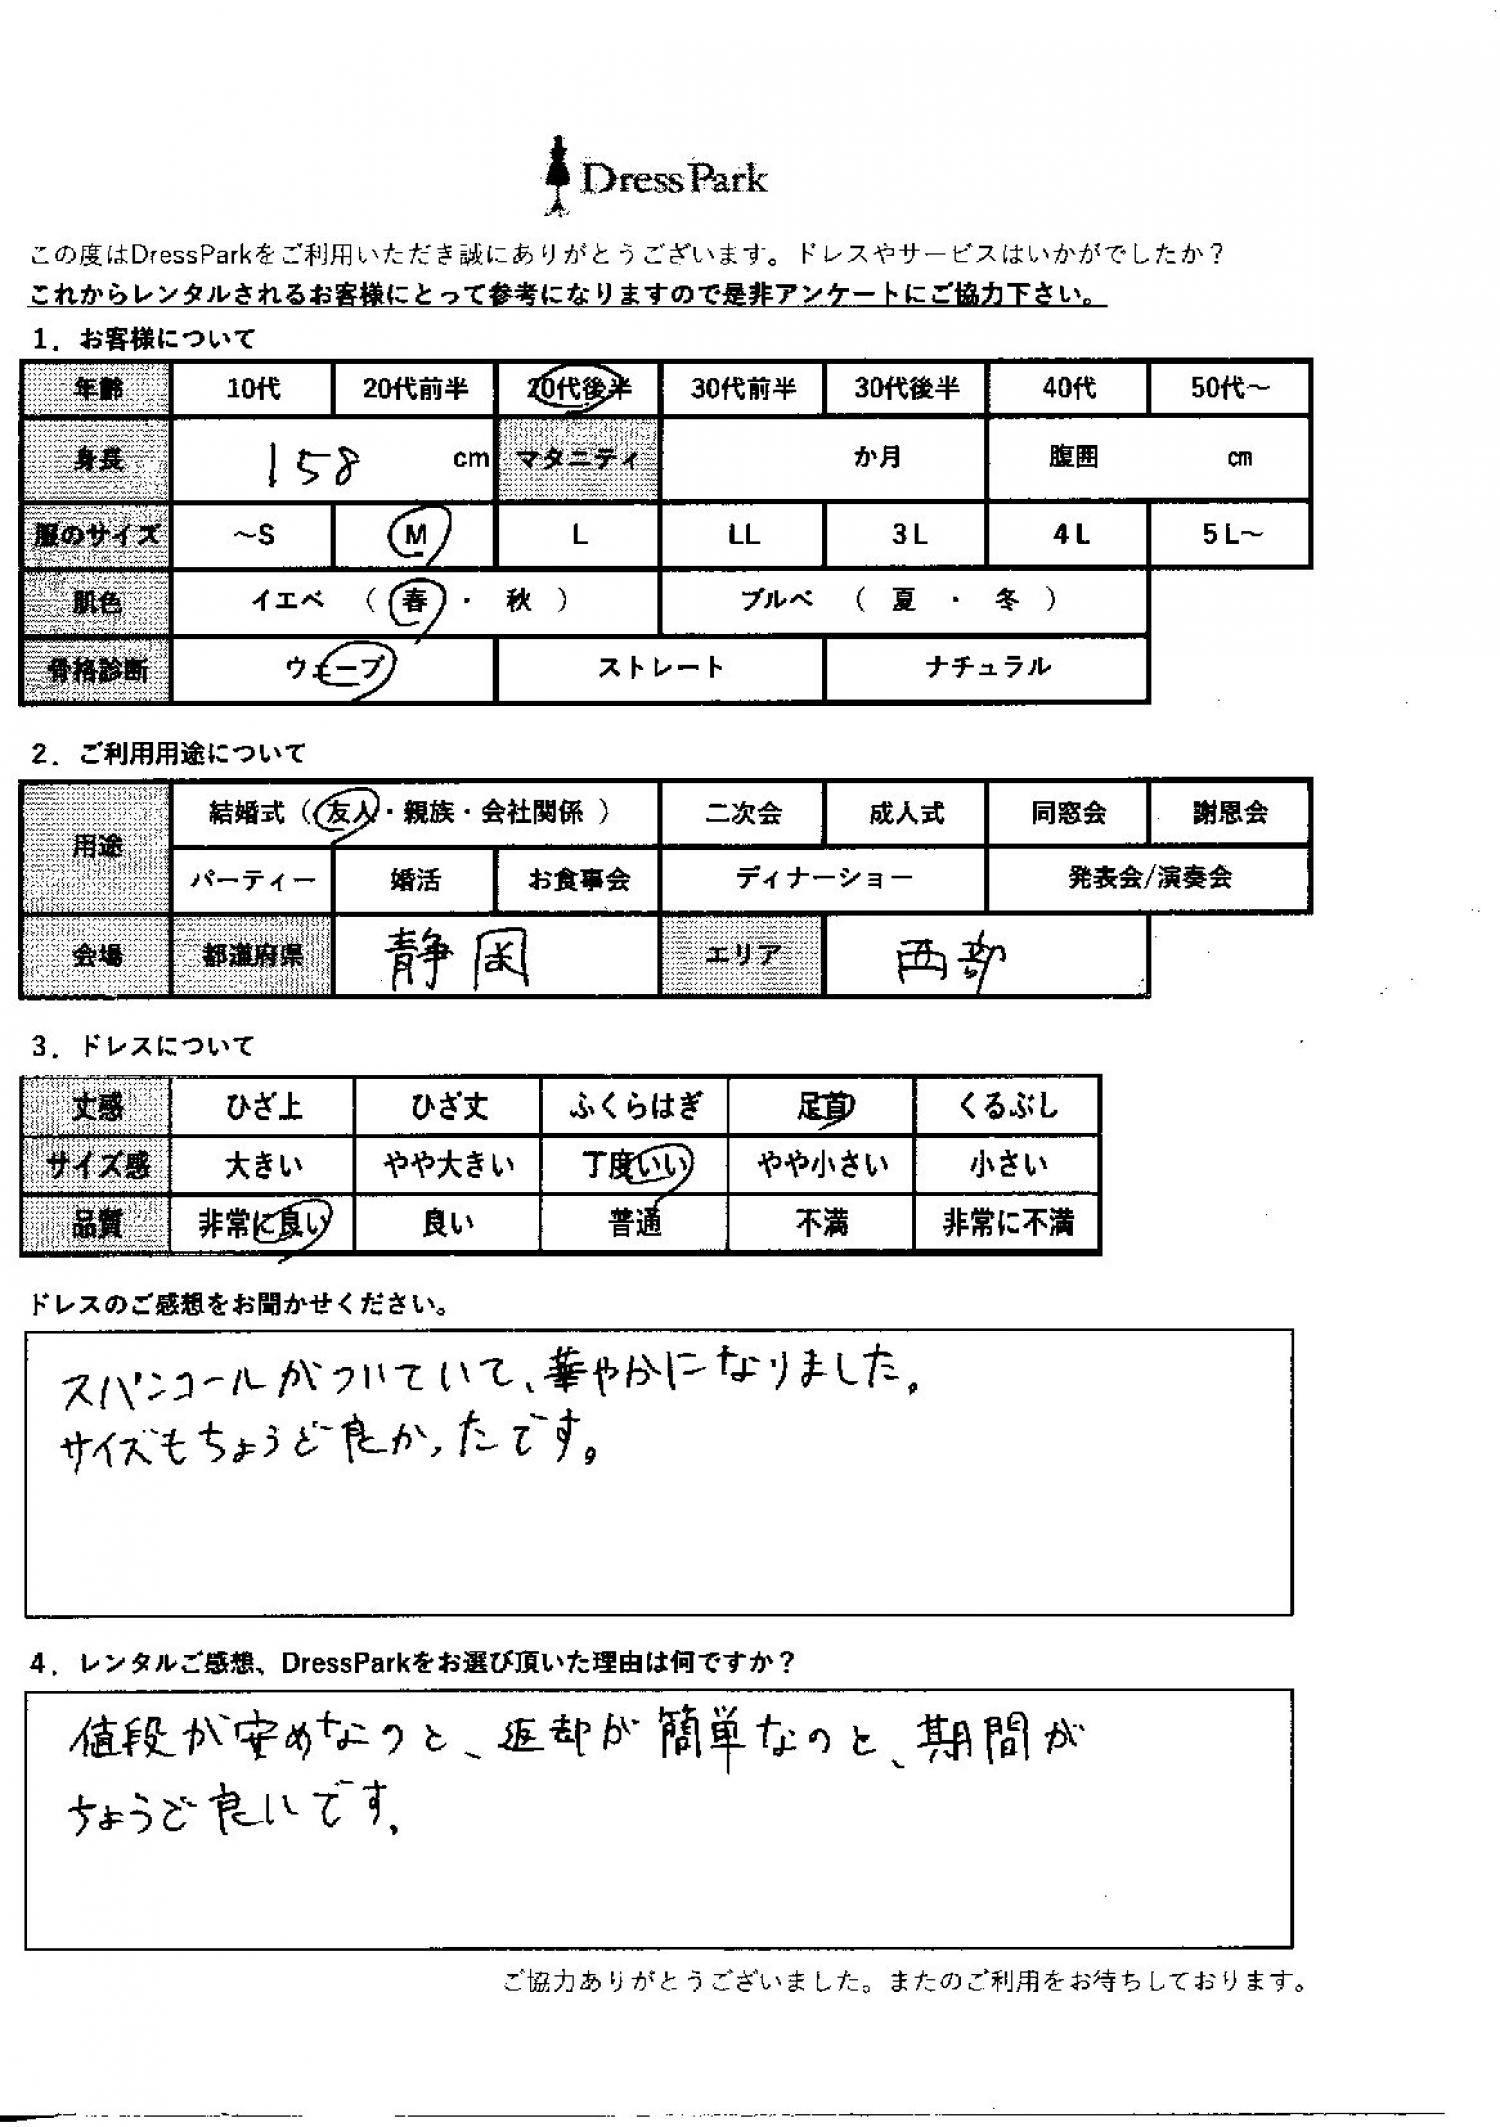 DressPark
この度はDressParkをご利用いただき誠にありがとうございます。ドレスやサービスはいかがでしたか？
これからレンタルされるお客様にとって参考になりますので是非アンケートにご協力下さい。
1．お客様について
年齢 10代 20代前半 20代後半 30代前半 30代後半 40代 50代～
身長 158 cm マタニティ か月 腹囲 cm
服のサイズ ～S M L LL 3L 4L 5L～
肌色 イエベ （ 春 ・ 秋 ） ブルベ （ 夏 ・ 冬 ）
骨格診断 ウェーブ ストレート ナチュラル
2．ご利用用途について
用途 結婚式（ 友人・親族・会社関係 ） 二次会 成人式 同窓会 謝恩会
パーティー 婚活 お食事会 ディナーショー 発表会/演奏会
会場 都道府県 静岡 エリア 西部
3．ドレスについて
丈感 ひざ上 ひざ丈 ふくらはぎ 足首 くるぶし
サイズ感 大きい やや大きい 丁度いい やや小さい 小さい
品質 非常に良い 良い 普通 不満 非常に不満
ドレスのご感想をお聞かせください。
スパンコールがついていて、華やかになりました。
サイズもちょうど良かったです。
4．レンタルご感想、DressParkをお選び頂いた理由は何ですか？
値段が安めなのと、返却が簡単なのと、期間が
ちょうど良いです。
ご協力ありがとうございました。またのご利用をお待ちしております。